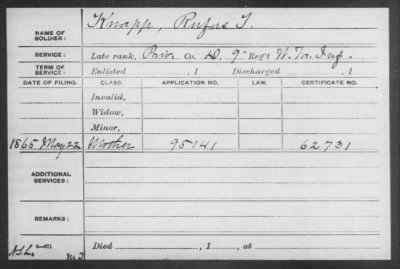 NAME OF SOLDIER: Knapp, Rufus T.
SERVICE: Late rank, Priv. Co. D, 9 Reg't W. Va. Inf.
TERM OF SERVICE: Enlisted , 1 Discharged , 1
DATE OF FILING. CLASS. APPLICATION NO. LAW. CERTIFICATE NO.
Invalid,
Widow,
Minor,
1865 May 22 Mother 95141 62731
ADDITIONAL SERVICES:
REMARKS:
Died , 1 , at